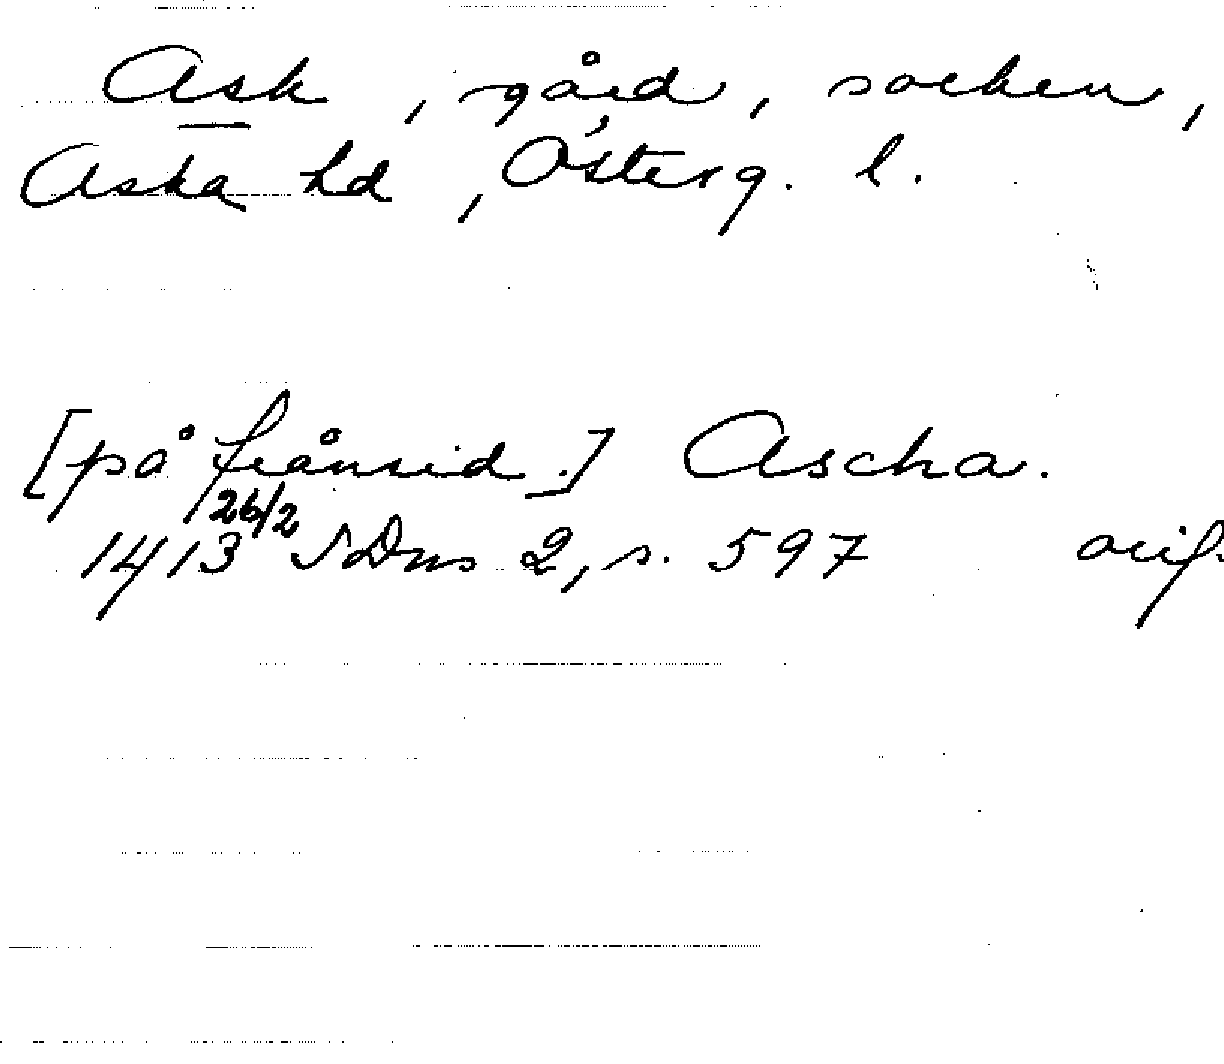 Ask, gård, socken,
Aska hd, Österg. l.
[på frånsid.] Ascha.
1413 26/2 SDns 2, s. 597 orig.